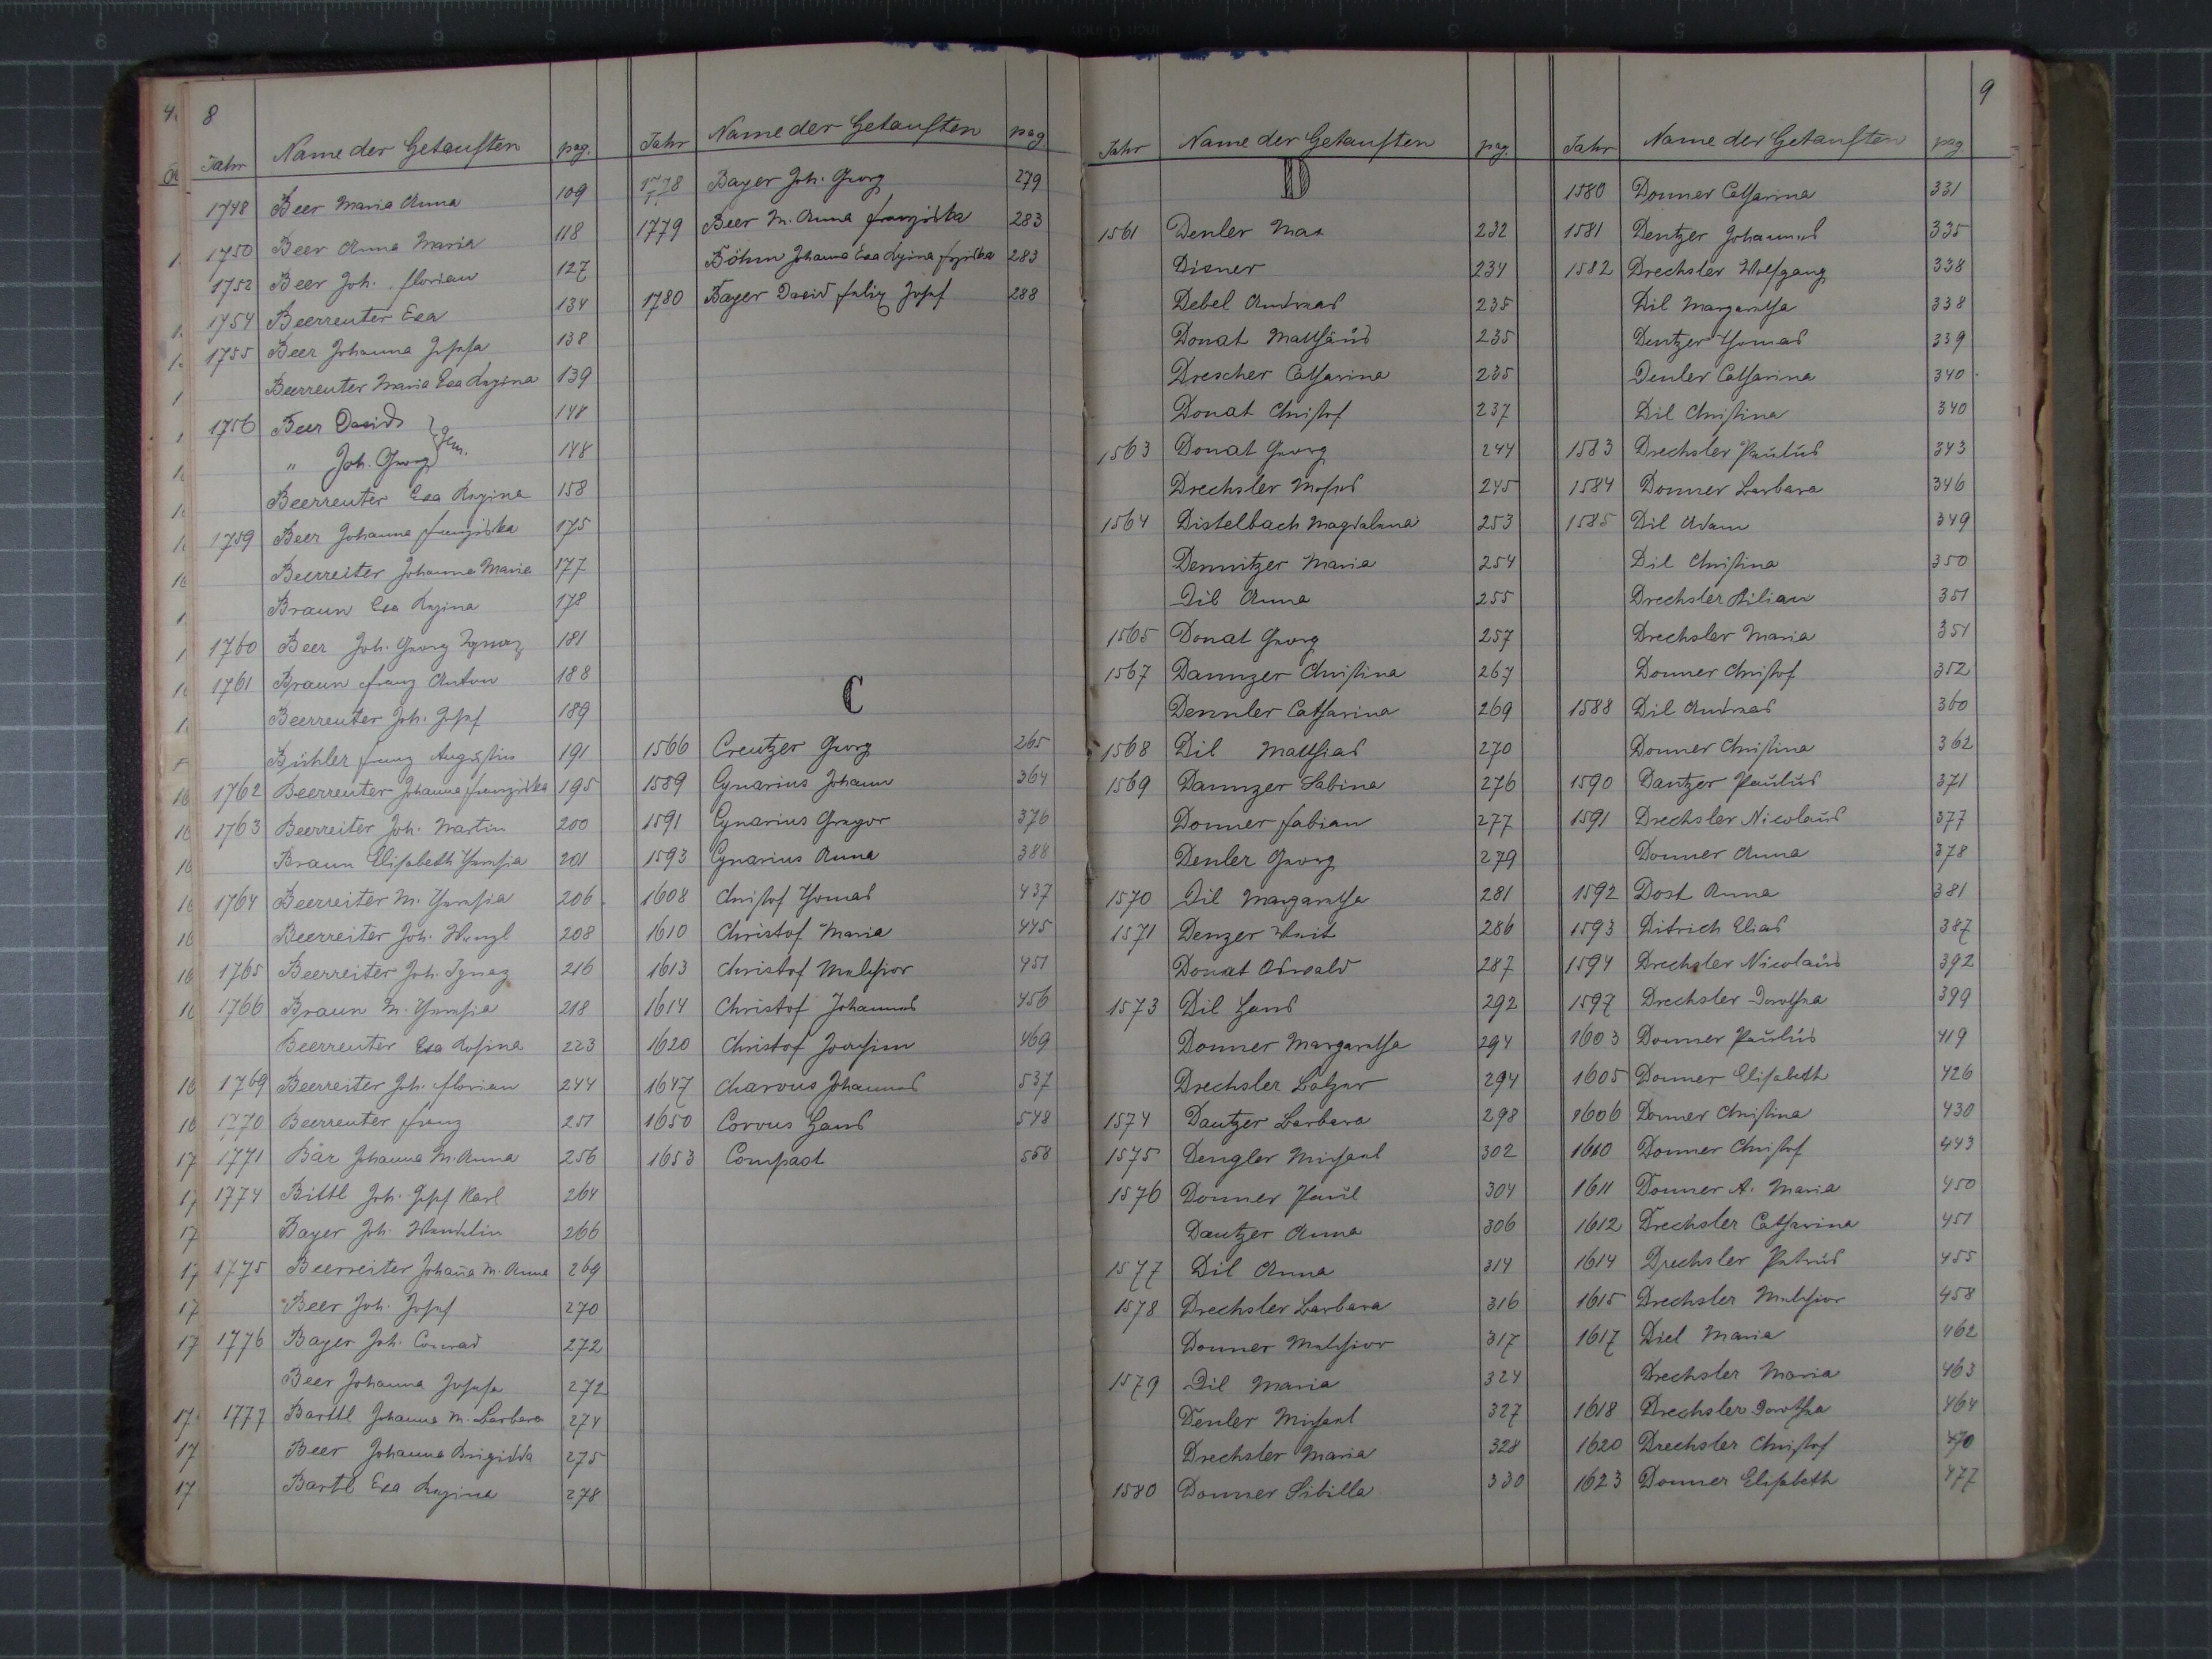 8
Jahr Name der Getauften pag.
1748 Beer Maria Anna 109
1750 Beer Anna Maria 118
1752 Beer Joh. Florian 127
1754 Beerreuter Eva 134
1755 Beer Johanna Josefa 138
Beerreuter Maria Eva Regina 139
1756 Beer David } Gem. 148
" Joh. Georg 148
Beerreuter Eva Regina 158
1759 Beer Johanna Franziska 175
Beerreiter Johanna Maria 177
Braun Eva Regina 178
1760 Beer Joh. Georg Ignaz 181
1761 Braun Franz Anton 188
Beerreuter Joh. Josef 189
Bühler Franz Augustin 191
1762 Beerreuter Johanna Franziska 195
1763 Beerreiter Joh. Martin 200
Braun Elisabeth Theresia 201
1764 Beerreiter M. Theresia 206
Beerreiter Joh. Wenzl 208
1765 Beerreiter Joh. Ignaz 216
1766 Braun M. Theresia 218
Beerreuter Eva Rosina 223
1769 Beerreiter Joh. Florian 244
1770 Beerreuter Franz 251
1771 Bär Johanna M. Anna 256
1774 Bittl Joh. Josef Karl 264
Bayer Joh. Wendelin 266
1775 Beerreiter Johana M. Anna 269
Beer Joh. Josef 270
1776 Bayer Joh. Conrad 272
Beer Johanna Josefa 272
1777 Barttl Johanna M. Barbara 274
Beer Johanna Brigidda 275
Bartl Eva Regina 278
Jahr Name der Getauften pag
1778 Bayer Joh. Georg 279
1779 Beer M. Anna Franziska 283
Böhm Johanna Eva Regina 283
1780 Bayer David Felix Josef 288
C
1566 Creutzer Georg 265
1589 Cynarius Johann 364
1591 Cynarius Gregor 376
1593 Cynarius Anna 388
1608 Christof Thomas 437
1610 Christof Maria 445
1613 Christof Melchior 451
1614 Christof Johannes 456
1620 Christof Joachim 469
1647 Charvus Johannes 537
1650 Corvus Hans 548
1653 Compast 558
9
Jahr Name der Getauften pag.
D
1561 Denler Max 232
Disner 234
Debel Andreas 235
Donat Matthäus 235
Drescher Catharina 235
Donat Christof 237
1563 Donat Georg 244
Drechsler Moses 245
1564 Distelbach Magdalena 253
Demnitzer Maria 254
Dil Anna 255
1565 Donat Georg 257
1567 Dannzer Christina 267
Dennler Catharina 269
1568 Dil Matthias 270
1569 Dannzer Sabina 276
Donner Fabian 277
Denler Georg 279
1570 Dil Margaretha 281
1571 Denzer Veit 286
Donat Oswald 287
1573 Dil Hans 292
Donner Margaretha 294
Drechsler Balzer 294
1574 Dantzer Barbara 298
1575 Dengler Michael 302
1576 Donner Paul 304
Dantzer Anna 306
1577 Dil Anna 314
1578 Drechsler Barbara 316
Donner Melchior 317
1579 Dil Maria 324
Denler Michael 327
Drechsler Maria 328
1580 Donner Sibilla 330
Jahr Name der Getauften pag
1580 Donner Catharina 331
1581 Dentzer Johannes 335
1582 Drechsler Wolfgang 338
Dil Margaretha 338
Dentzer Thomas 339
Denler Catharina 340
Dil Christina 340
1583 Drechsler Paulus 343
1584 Donner Barbara 346
1585 Dil Adam 349
Dil Christina 350
Drechsler Kilian 351
Drechsler Maria 351
Donner Christof 352
1588 Dil Andreas 360
Donner Christina 362
1590 Dantzer Paulus 371
1591 Drechsler Nicolaus 377
Donner Anna 378
1592 Dost Anna 381
1593 Ditrich Elias 387
1594 Drechsler Nicolaus 392
1597 Drechsler Dorothea 399
1603 Donner Paulus 419
1605 Donner Elisabeth 426
1606 Donner Christina 430
1610 Donner Christof 443
1611 Donner A. Maria 450
1612 Drechsler Catharina 451
1614 Drechsler Petrus 455
1615 Drechsler Melchior 458
1617 Diel Maria 462
Drechsler Maria 463
1618 Drechsler Dorothea 464
1620 Drechsler Christof 470
1623 Donner Elisabeth 477